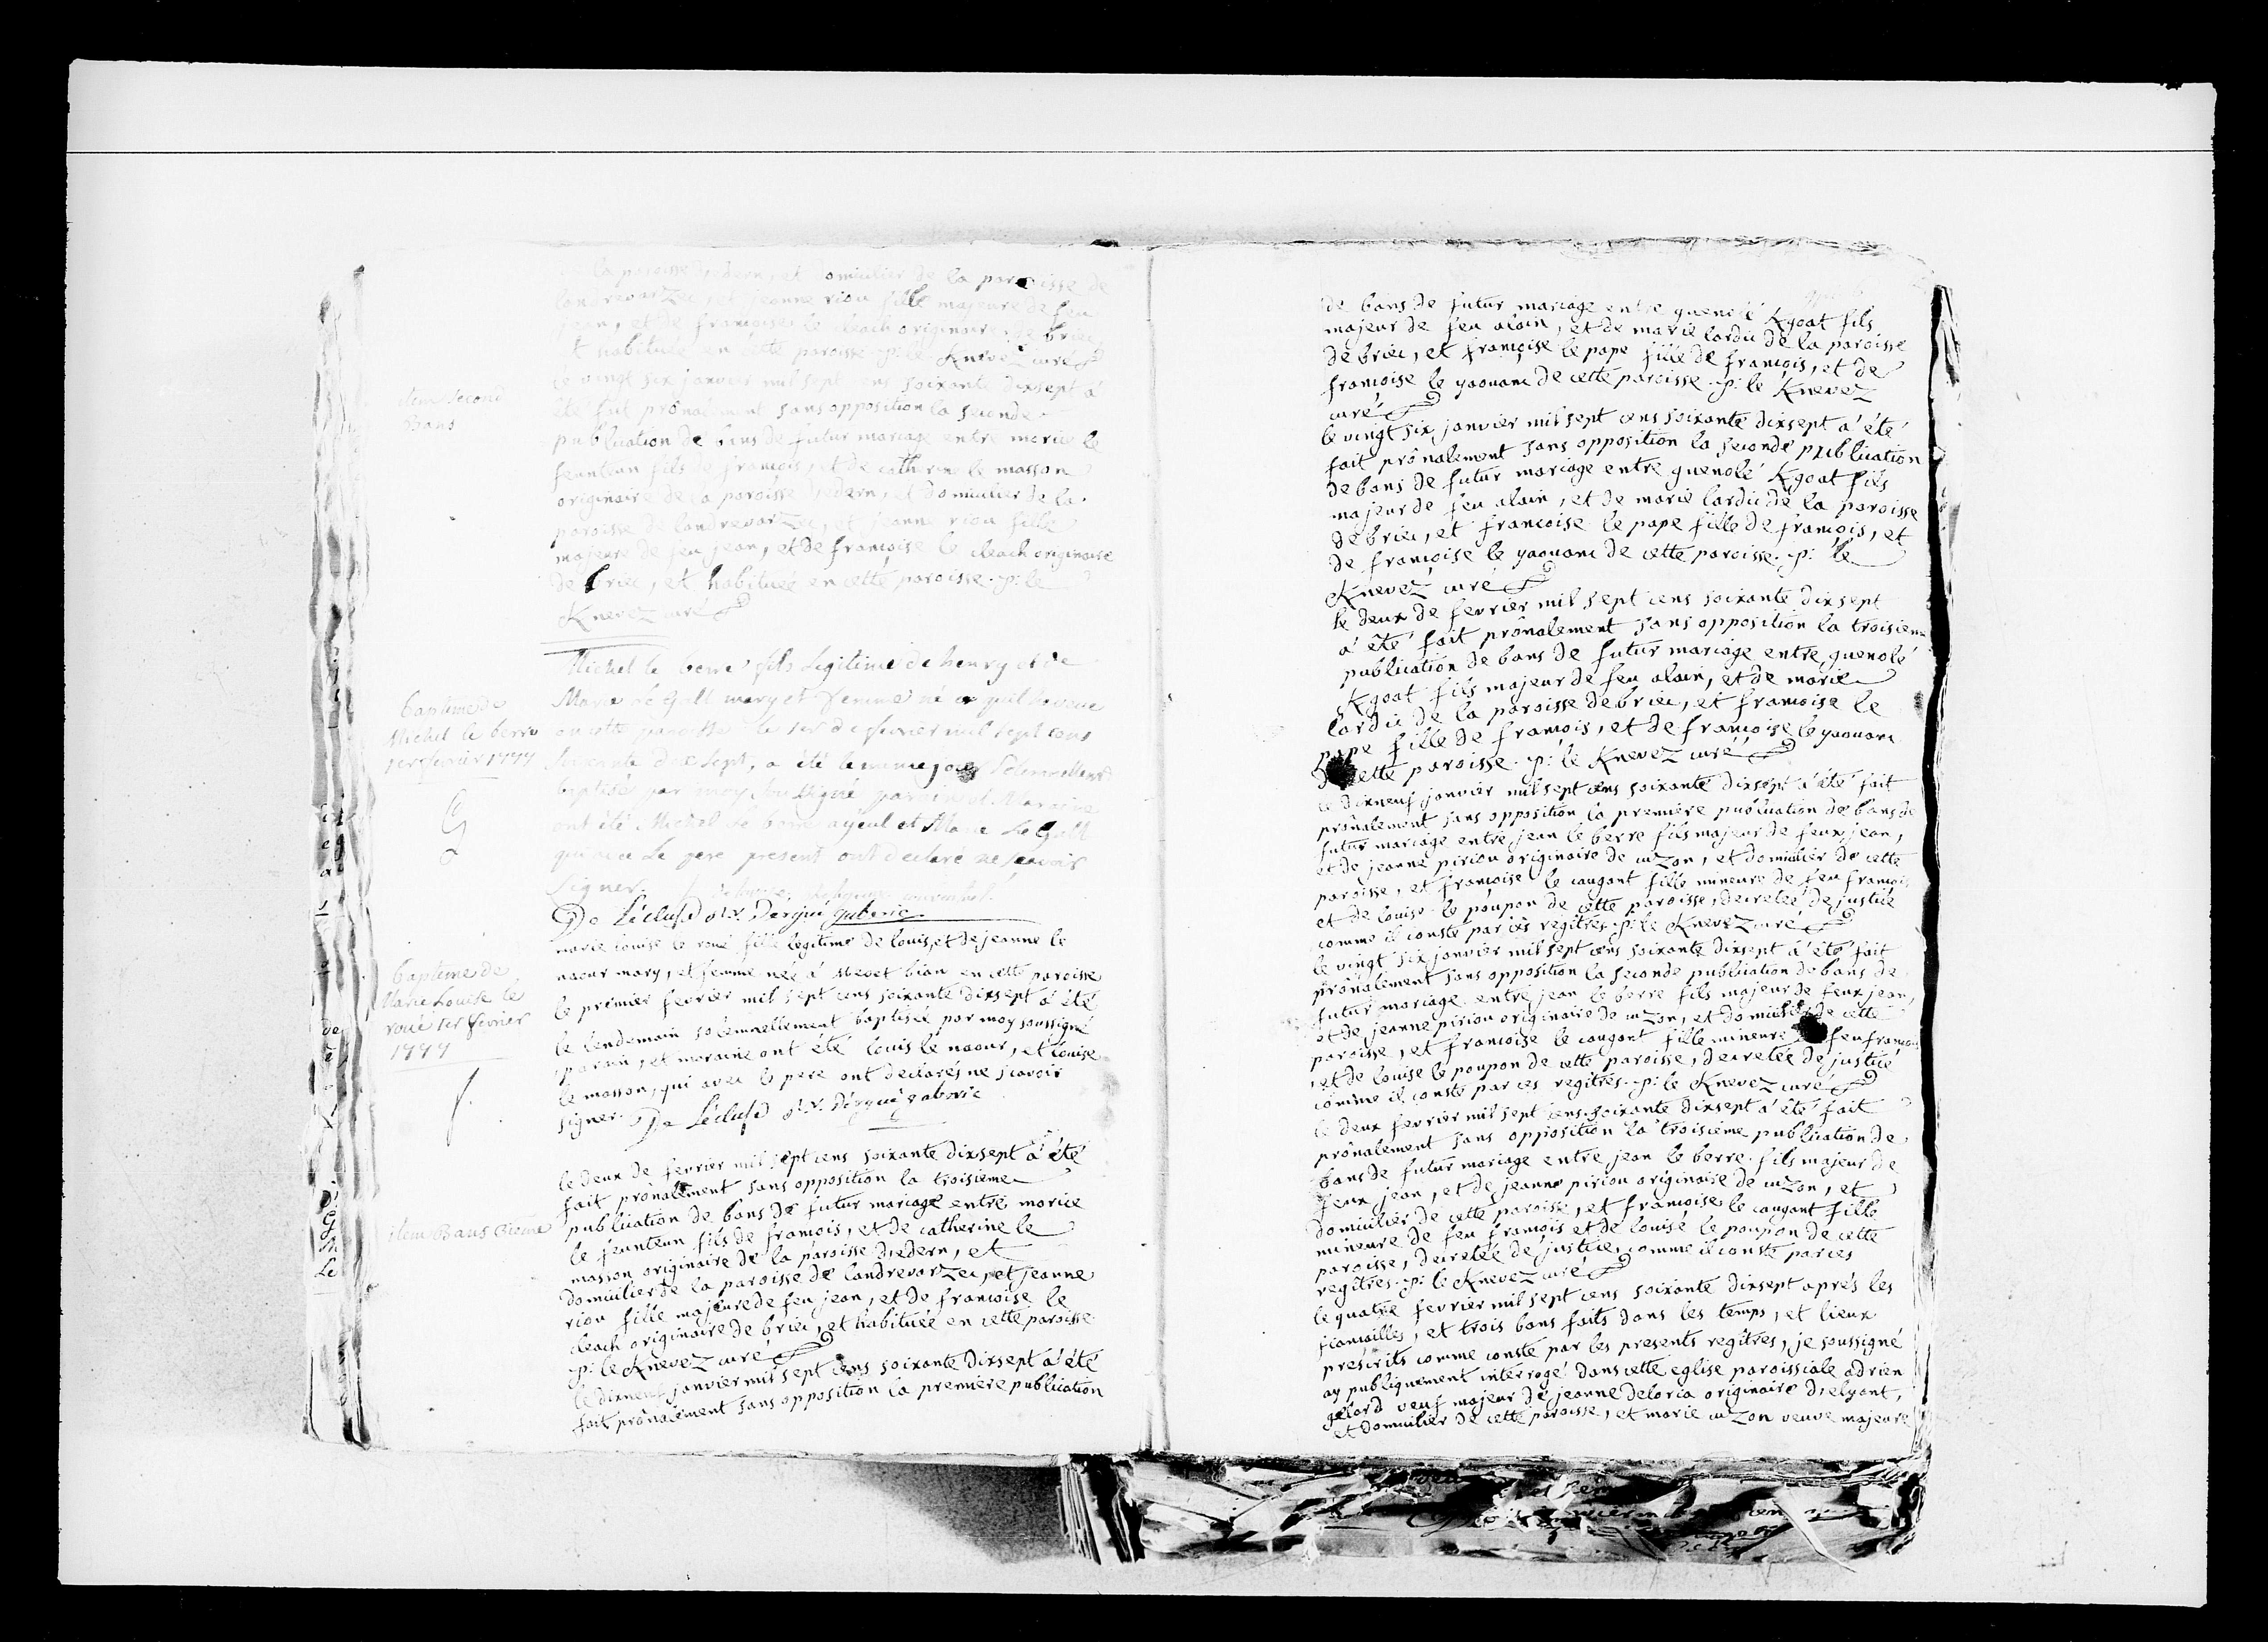 la paroisse dedern, et domicilier de la paroisse de
landrevarzec, et jeanne riou fille majeure de feu
jean, et de francoise le cleach originaire de briec
et habituée en cette paroisse. p: le Knevez curé
item second
Bans
le vingt six janvier mil sept cens soixante dixsept á
été fait prônalement sans opposition la seconde
publication de bans de futur mariage entre morice le
feunteun fils de francois, et de catherine le masson
originaire de la paroisse dedern, et domicilier de la
paroisse de landrevarzec, et jeanne riou fille
majeure de feu jean, et de francoise le cleach originaire
de briec, et habituée en cette paroisse. p: le
Knevez curé
baptême de
Michel le berre
1er fevrier 1777
G
Michel le berre fils Legitime de henry et de
Marie Le Gall mary et femme né a
en cette paroisse le 1er de fevrier mil sept cens
soixante dix Sept, a été le meme jour Solemnellement
baptisé par moy Sous Signé parrain et Maraine
ont été Michel Le berre ayeul et Marie Le Gall
qui avec Le pere present ont declaré ne Scavoir
Signer.
De Lécluse d'Ergué gaberic
baptême de
Marie Louise le
roué 1er fevrier
1777
marie louise le roué fille legitime de louis, et de jeanne le
naour mary, et femme neé á Mevet bian en cette paroisse
le premier fevrier mil sept cens soixante dixsept á été
le lendemain solemnellement baptiseé par moy soussigné
parain, et maraine ont été louis le naour, et louise
le masson, qui avec le pere ont declarés ne scavoir
signer. De Lécluse d'Ergué gaberic
item Bans 3ieme
le deux de fevrier mil sept cens soixante dixsept á été
fait prônalement sans opposition la troisieme
publication de bans de futur mariage entre morice
le feunteun fils de francois, et de catherine le
masson originaire de la paroisse dedern, et
domicilier de la paroisse de landrevarzec, et jeanne
riou fille majeure de feu jean, et de francoise le
cleach originaire de briec, et habitueé en cette paroisse
p: le Knevez curé
le dixneuf janvier mil sept cens soixante dixsept á été
fait prônalement sans opposition la premiere publication
de bans de futur mariage entre guenolé Kgoat fils
majeur de feu alain, et de marie lardic de la paroisse
de briec, et francoise le pape fille de francois, et de
francoise le yaouanc de cette paroisse. p: le Knevez
curé
le vingt six janvier mil sept cens soixante dixsept á été
fait prônalement sans opposition la seconde publication
de bans de futur mariage entre guenolé Kgoat fils
majeur de feu alain, et de marie lardic de la paroisse
de briec, et francoise le pape fille de francois, et
de francoise le yaouanc de cette paroisse. p: le
Knevez curé
le deux de fevrier mil sept cens soixante dixsept
á été fait prônalement sans opposition la troisieme
publication de bans de futur mariage entre guenolé
Kgoat fils majeur de feu alain, et de marie
lardic de la paroisse de briec, et francoise le
pape fille de francois, et de francoise le yaouanc
de cette paroisse. p: le Knevez curé
le dixneuf janvier mil sept cens soixante dixsept á été fait
prônalement sans opposition la premiere publication de bans de
futur mariage entre jean le berre fils majeur de feux jean,
et de jeanne piriou originaire de cuzon, et domicilier de cette
paroisse, et francoise le caugant fille mineure de feu francois
et de louise le poupon de cette paroisse, decreteé de justice
comme il conste par ces regitres. p: le Knevez curé
le vingt six janvier mil sept cens soixante dixsept á été fait
prônalement sans opposition la seconde publication de bans de
futur mariage entre jean le berre fils majeur de feux jean,
et de jeanne piriou originaire de cuzon, et domicilier de cette
paroisse, et francoise le caugant fille mineure de feu francois
, et de louise le poupon de cette paroisse, decreteé de justice
comme il conste par ces regitres. p: le Knevez curé
le deux fevrier mil sept cens soixante dixsept á été fait
prônalement sans opposition la troisieme publication de
bans de futur mariage entre jean le berre fils majeur de
feux jean, et de jeanne piriou originaire de cuzon, et
domicilier de cette paroisse, et francoise le caugant fille
mineure de feu francois et de louise le poupon de cette
paroisse, decreteé de justice, comme il conste par ces
regitres. p: le Knevez curé
le quatre fevrier mil sept cens soixante dixsept aprés les
fiancailles, et trois bans faits dans les temps, et lieux
prescrits comme conste par les presents regitres, je soussigné
ay publiquement interrogé dans cette eglise paroissiale adrien
gelard veuf majeur de jeanne deloria originaire delyant,
et domicilier de cette paroisse, et marie cuzon veuve majeure